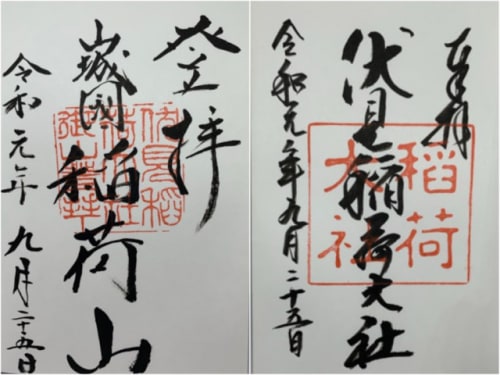 登拝
山城國稲荷山
令和元年九月二十五日
奉拝
伏見稲荷大社
令和元年九月二十五日
稲荷
大社